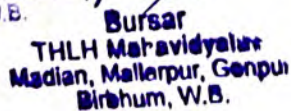 W.B.
Bursar
THLH Mahavidyalay
Madian, Mallarpur, Gonpur
Birbhum, W.B.